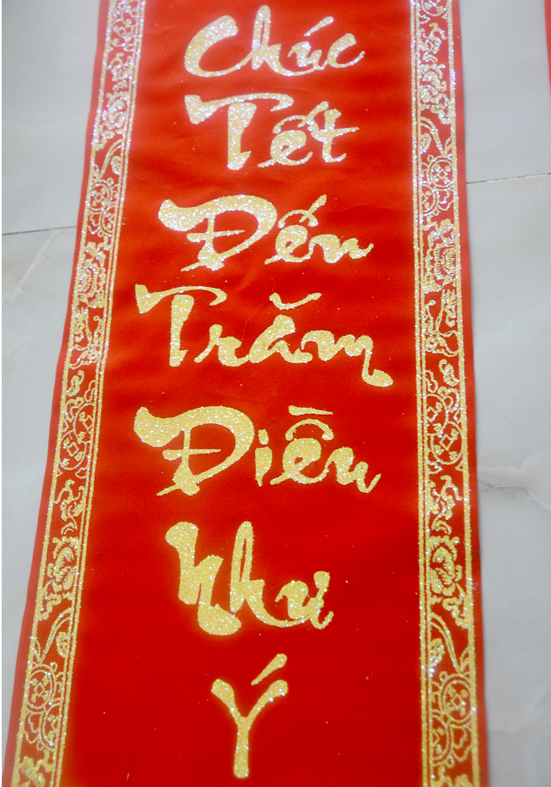 Chúc
Tết
Đến
Trăm
Điều
Như
Ý